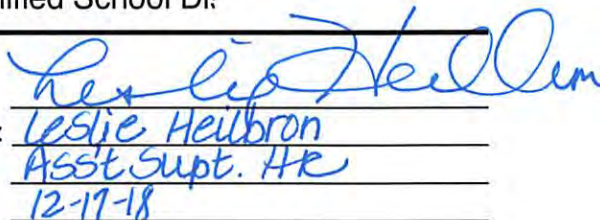 ified School Di
Leslie Heilbron
: Leslie Heilbron
Asst Supt. HR
12-17-18